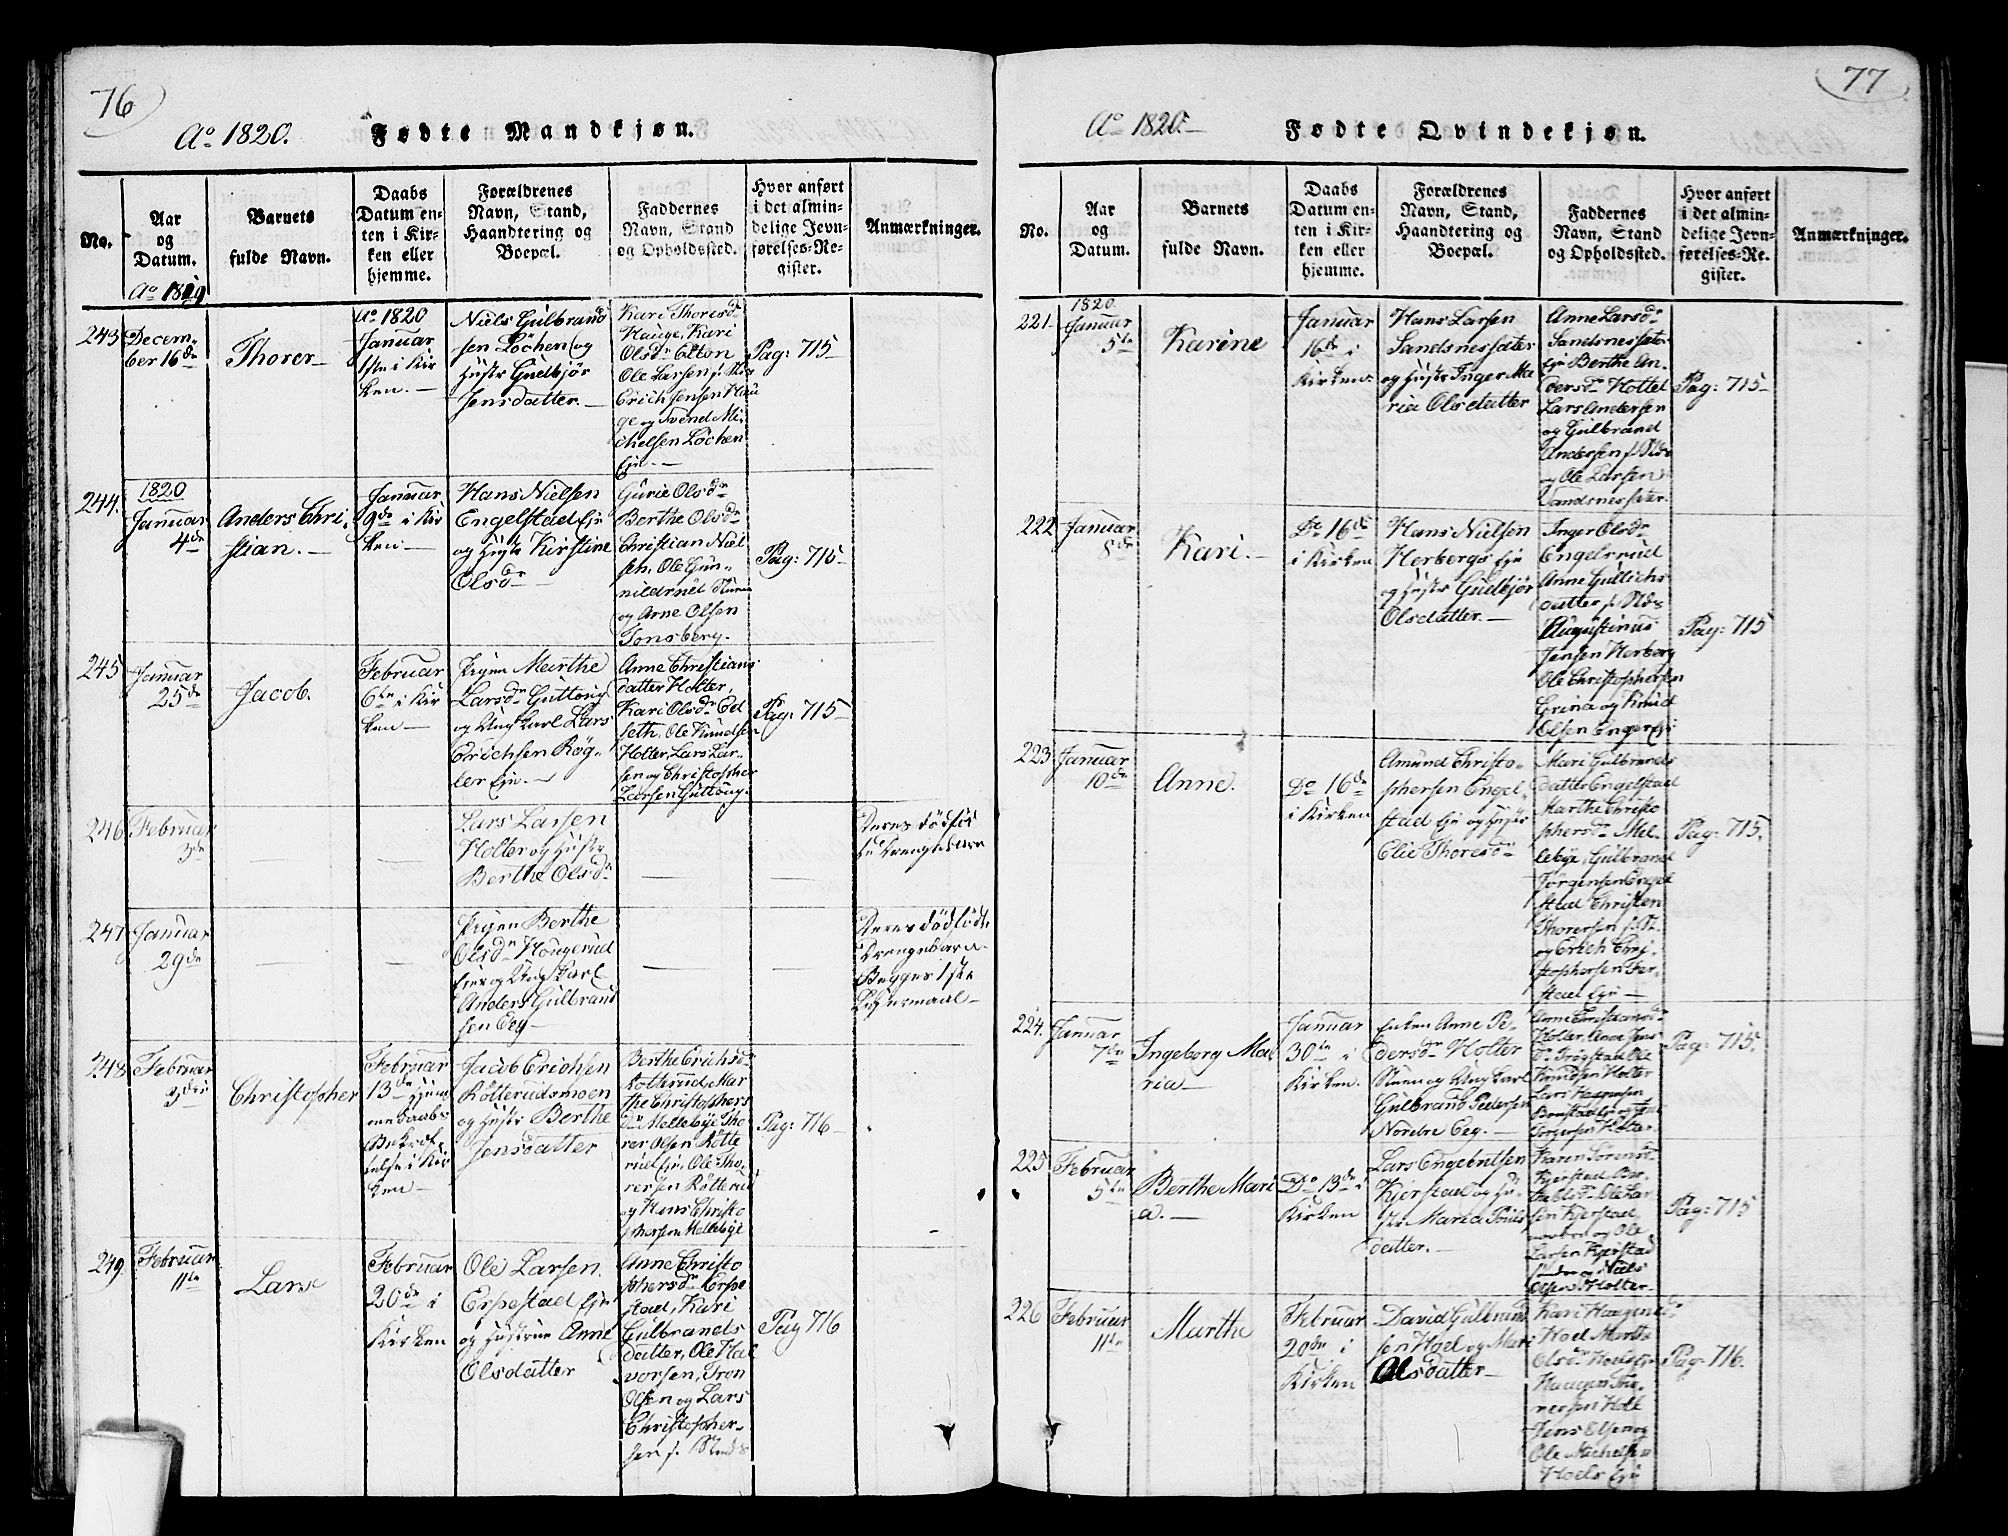 76
Ao 1820.
Fødte Mandkjøn.
No.
Aar
og
Datum.
Barnets
fulde Navn.
Daabs
Datum en-
ten i Kir-
ken eller
hjemme.
Forældrenes
Navn, Stand,
Haandtering og
Boepæl.
Faddernes
Navn, Stand
og Opholdssted.
Hvor anført
i det almin-
delige Jevn-
førelses-Re-
gister.
Anmærkninger.
Ao 1819
243
Decem-
ber 16de
Thorer
Ao 1820
Januar
1ste i Kir
ken.
Niels Gulbrand
sen Löchen og
Hustr Gudbjør
Jensdatter.
Kari Thoresdr
Hauge, Kari
Olsdr Elton
Ole Larsen
Erichsen Hau
ge og Svend Mi
chelsen Löchen
Eje.
Pag: 715
244.
1820
Januar
4de
Anders Chri
stian.
Januar
9de i Kir
ken
Hans Nielsen
Engelstad Eje
og Hustr Kirstine
Olsdr
Gurie Olsdr
Berthe Olsdr
Christian Niel
sen. Ole Gun-
nildrud
og Arne Olsen
Tonsberg.
Pag: 715
245
Januar
25de
Jacob.
Februar
6te i Kir
ken
Pigen Marthe
Larsdr Guttoug
og Ung Karl Lars
Erichsen Røg-
ler Eje.
Anne Christians
datter Holter,
Kari Olsdr Ed
seth, Ole Knudsen
Holter, Lars Lar-
sen og Christopher
Larsen Guttoug.
Pag: 715
246
Februar
3de
Lars Larsen
Holter og Hustr
Berthe Olsdr
Deres dödfød
te Drengebarn
247
Januar
29de
Pigen Berthe
Olsdr Hougerud
Eier og Ung Karl
Anders Gulbrand
sen Eeg
Deres dödfödte
Drengebarn
Begges 1ste
Leiermaal
248
Februar
3die
Christopher
Februar
13de Hjem
medaabs
Bekræft
else i Kir
ken
Jacob Erichsen
Rotterudsmoen
og Hustr Berthe
Jensdatter
Berthe Erichsdr
Rotterud Mar
the Christophers
dr Mellebye Tho
rer Olsen Rotte
rud Eje, Ole Tho-
rersen Rotterud
og Hans Christo
phersen Mellebye
Pag: 716
249.
Februar
11te
Lars
Februar
20de i
Kirken
Ole Larsen
Erpestad Eje
og Hustrue Anne
Olsdatter
Anne Christo
phersdr Erpe
stad, Kari
Gulbrands
datter, Ole Hal
vorsen, Tron
Olsen og Lars
Christopher-
sen
Pag 716
77
Ao 1820
Fødte Qvindekjøn.
No.
Aar
og
Datum.
Barnets
fulde Navn.
Daabs
Datum en-
ten i Kir-
ken eller
hjemme.
Forældrenes
Navn, Stand,
Haandtering og
Boepæl.
Faddernes
Navn, Stand
og Opholdssted.
Hvor anført
i det almin-
delige Jevn-
førelses-Re-
gister.
Anmærkninger.
221
1820
Januar
5te
Karine
Januar
16de i
Kirken
Hans Larsen
Sandsnessæter
og Hustr Inger Ma
ria Olsdatter
Anne Larsdr
Sandsnessæter
Eje Berthe An
dersdr Holtet
Lars Andersen
og Gulbrand
Andersen
Ole Larsen
Sandsnessæter.
Pag: 715
222
Januar
8de
Kari.
Do 16de
i Kirken
Hans Nielsen
Herbergs Eje
og Hustr Gudbjør
Olsdatter.
Inger Olsdr
Engelsrud
Anne Gullichs
datter
Augustinus
Jensen Herberg
Ole Christophersen
Grina og Knud
Olsen Enger Eje
Pag: 715
223
Januar
10de
Anne.
Do 16de
i Kirken
Amund Christo-
phersen Engel-
stad Eje og Hustr
Elie Thoresdr
Mari Gulbrands
datter Engelstad
Marthe Christo
phersdr Mel-
lebye, Gulbrand
Jørgensen Engel
stad Christen
Thorersen
og Erich Chri-
stophersen Fer-
stad Eje
Pag: 715.
224.
Januar
7de
Ingeborg Ma
ria
Januar
30te i
Kirken.
Enken Anne Pe-
dersdr Holter
og Ung Karl
Gulbrand Pedersen
Nordre Eeg.
Anne Christiansdr
Holter, Anne Jens
dr Ole
Knudsen Holter
Lars
Holter.
Pag: 715.
225
Februar
5te
Berthe Mari
a.
Do 13de i
Kirken
Lars Engebritsen
Kjerstad og Hu-
str Maria Pouls
datter.
Karen Sörensdr
Kjerstad Ber-
the Olsdr Ole Lar-
sen Kjerstad
og Ole
Larsen Kjerstad
og Niels
Olsen Holter.
Pag: 715
226
Februar
11te
Marthe
Februar
20de i
Kirken
David Gulbrand
sen Hoel og Mari
Olsdatter
Kari Haagensdr
Hoel Marthe
Olsdr Hoels Eje
Haagen Tho-
rersen Hoel
Jens Olsen og
Ole Michelsen
Hoels Eje
Pag: 716.